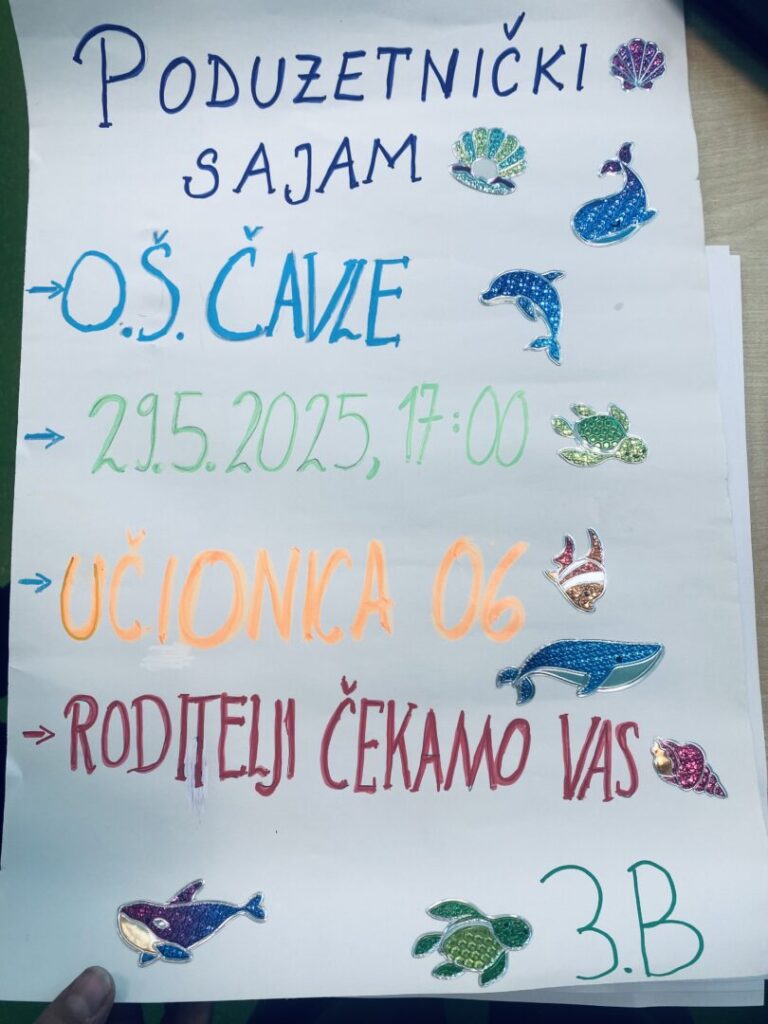 PODUZETNIČKI
SAJAM
→ O.Š. ČAVLE
→ 29.5.2025, 17:00
→ UČIONICA 06
→ RODITELJI ČEKAMO VAS
3.B